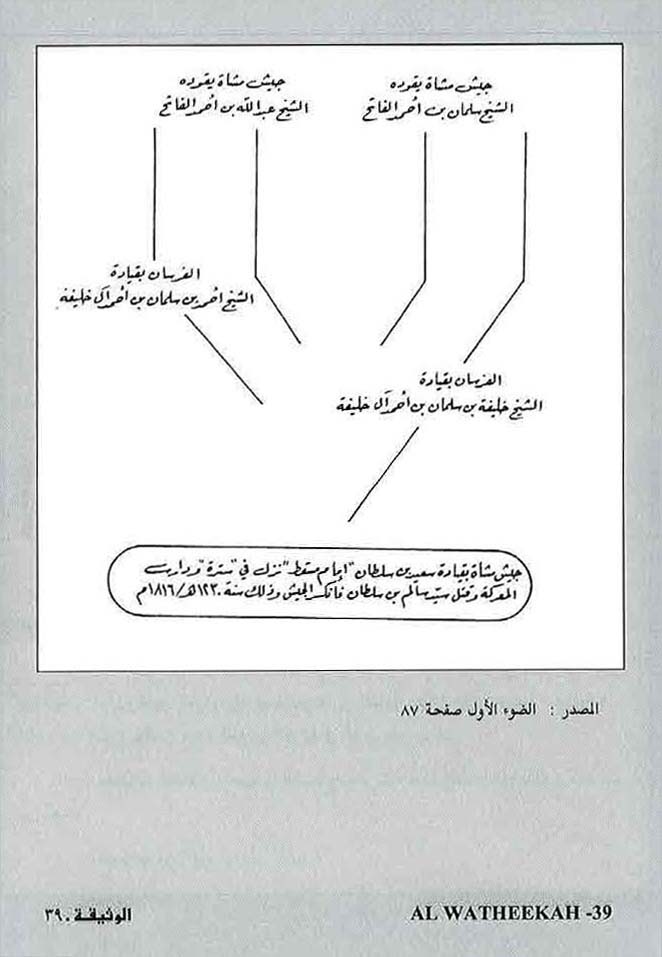 جيش مشاة يقوده
الشيخ سلمان بن أحمد الفاتح
جيش مشاة يقوده
الشيخ عبدالله بن أحمد الفاتح
الفرسان بقيادة
الشيخ أحمد بن سلمان بن أحمد آل خليفة
الفرسان بقيادة
الشيخ خليفة بن سلمان بن أحمد آل خليفة
جيش مشاة بقيادة سعيد بن سلطان "إمام مسقط" نزل في "سترة" ودارت
المعركة وقتل سيد سالم بن سلطان فانكسر الجيش وذلك سنة ١٢٣٠هـ/١٨١٦م
المصدر : الضوء الأول صفحة ٨٧
AL WATHEEKAH -39
الوثيقة . ٣٩